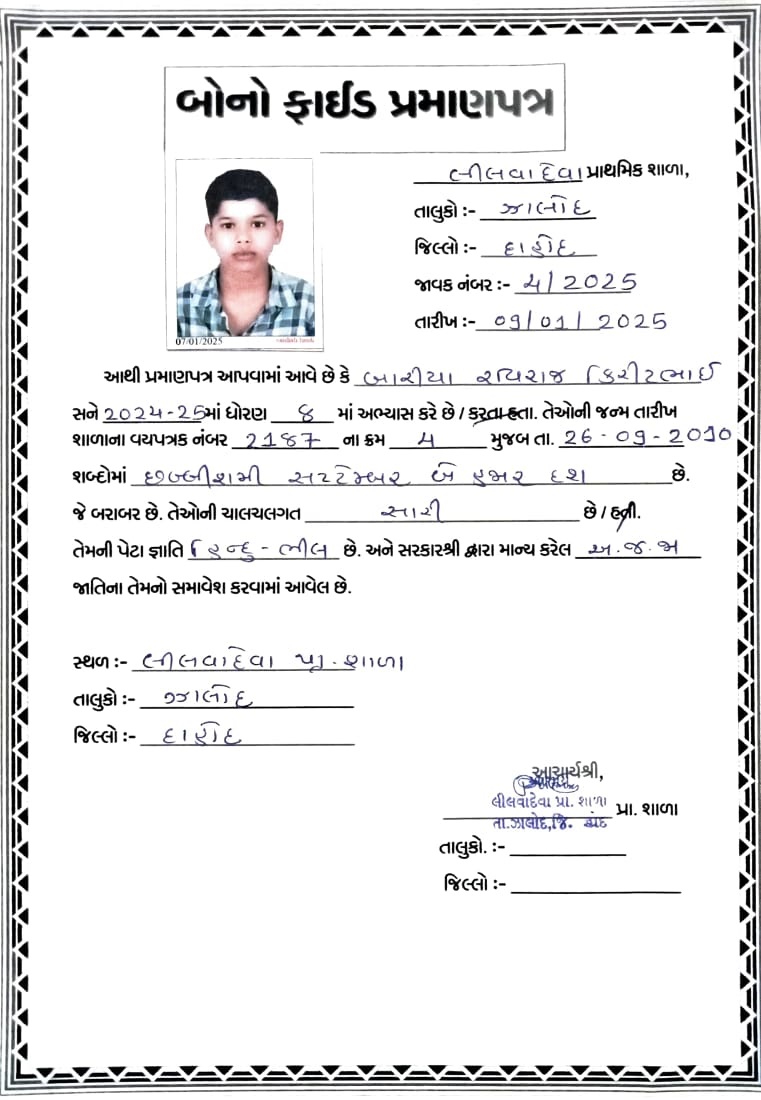 બોનો ફાઈડ પ્રમાણપત્ર
લીલવાદેવા પ્રાથમિક શાળા,
તાલુકો :- ઝાલોદ
જિલ્લો :- દાહોદ
જાવક નંબર :- 4/2025
તારીખ :- 09/01/2025
07/01/2025
આથી પ્રમાણપત્ર આપવામાં આવે છે કે બારીયા રવિરાજ કિરીટભાઈ
સને 2024-25માં ધોરણ 8 માં અભ્યાસ કરે છે / કરતા હતા. તેઓની જન્મ તારીખ
શાળાના વયપત્રક નંબર 2187 ના ક્રમ 4 મુજબ તા. 26-09-2010
શબ્દોમાં છવ્વીશમી સપ્ટેમ્બર બે હજાર દશ છે.
જે બરાબર છે. તેઓની ચાલચલગત સારી છે / હતી.
તેમની પેટા જ્ઞાતિ હિન્દુ-ભીલ છે. અને સરકારશ્રી દ્વારા માન્ય કરેલ અ.જ.જા
જાતિના તેમનો સમાવેશ કરવામાં આવેલ છે.
સ્થળ :- લીલવાદેવા પ્રા.શાળા
તાલુકો :- ઝાલોદ
જિલ્લો :- દાહોદ
આચાર્યશ્રી,
લીલવાદેવા પ્રા. શાળા પ્રા. શાળા
તા.ઝાલોદ,જિ.
તાલુકો. :-
જિલ્લો :-